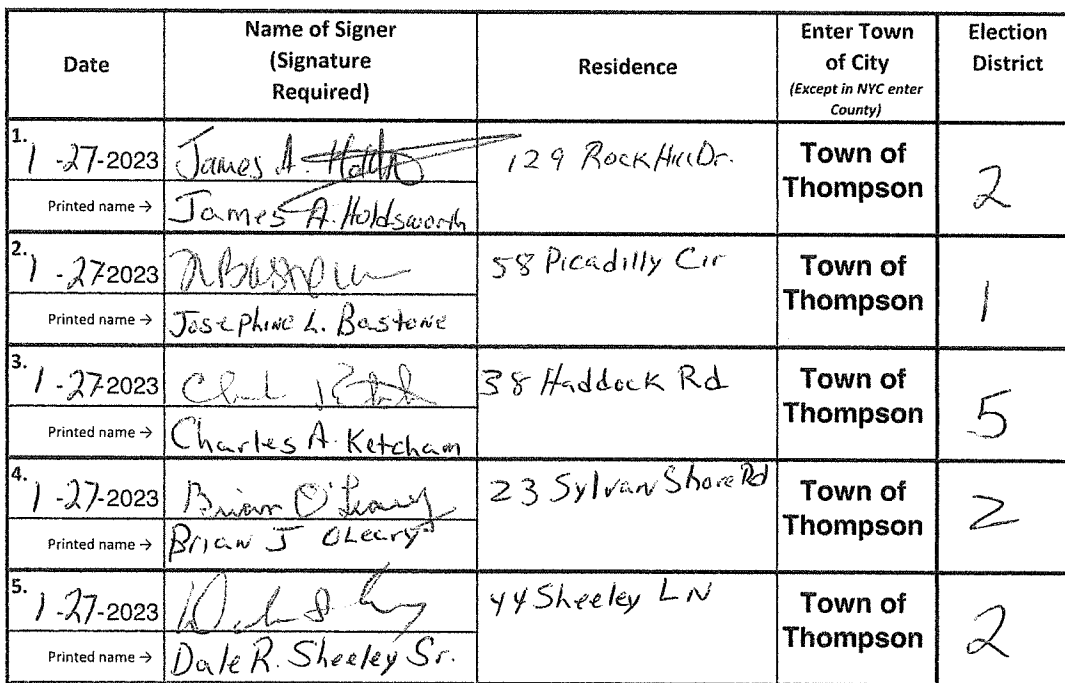 Date
Name of Signer
(Signature
Required)
Residence
Enter Town
of City
(Except in NYC enter
County)
Election
District
1. 1-27-2023 James A. 129 Rock Hill Dr. Town of Thompson 2
Printed name → James A. Holdsworth
2. 1-27 2023 58 Picadilly Cir Town of Thompson 1
Printed name → Josephine L. Bastone
3. 1-27-2023 38 Haddock Rd Town of Thompson 5
Printed name → Charles A. Ketcham
4. 1-27-2023 Brian O'Leary 23 Sylvan Shore Rd Town of Thompson 2
Printed name → Brian J OLeary
5. 1-27-2023 44 Sheeley LN Town of Thompson 2
Printed name → Dale R. Sheeley Sr.